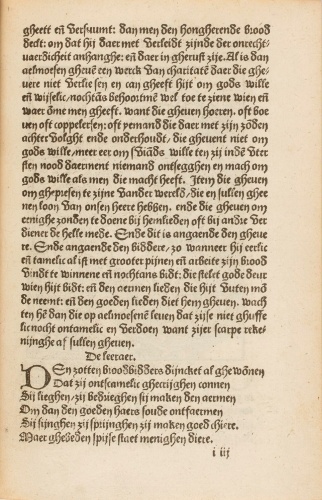 gheeft eñ versuumt: dan men den hongherende brood
deelt: om dat hij daer met verleidt zijnde der onrecht-
vaerdicheit anhanghe: eñ daer in gherust zije. Al is dan
aelmoesen ghevē een werck van charitatē daer die ghe-
vere niet verliesen en can gheeft hijt om gods wille
eñ wijselic, nochtās behoortmē wel toe te ziene wien eñ
waer ōme men gheeft. want die gheven hoeren. oft boe
ven oft coppelersen: oft yemand die daer met zijn zōden
achtervolght ende onderhoudt, die ghevent niet om
gods wille, meer eer om sviāds wille ten zij indē vter
sten nood daerment niemand ontsegghen en mach om
gods wille als men die macht heeft. Itē die gheven
om ghepresen te zijne vander werelt, die en sullen ghee
nen loon van onsen heere hebben. ende die gheven om
eenighe zonden te doene bij hemlieden oft bij andre ver
dienet de helle mede. Ende dit is angaende den gheve
re. Ende angaende den biddere, zo wanneer hij eerlic
eñ tamelic al ist met grooter pijnen eñ arbeite zijn brood
vindt te winnene eñ nochtans bidt: die stelet gode deur
wien hijt bidt: eñ den aermen lieden die hijt vuten mō
de neemt: eñ den goeden lieden diet hem gheven. wach
ten hē dan die op aelmoesenē leven dat zijse niet ghuffe
lic nocht ontamelic en verdoen want zijer scarpe reke-
nijnghe af sullen gheven.
De leeraer.
DEn zotten broodbidders dijncket al ghewōnen
Dat zij ontsamelic ghecrijghen connen
Sij lieghen, zij bedrieghen sij maken den aermen
Om dan den goeden haers soude ontfaermen
Sij sijnghen zij sprijnghen zij maken goed chiere,
Maer ghebeden spijse staet menighen diere.
i iij